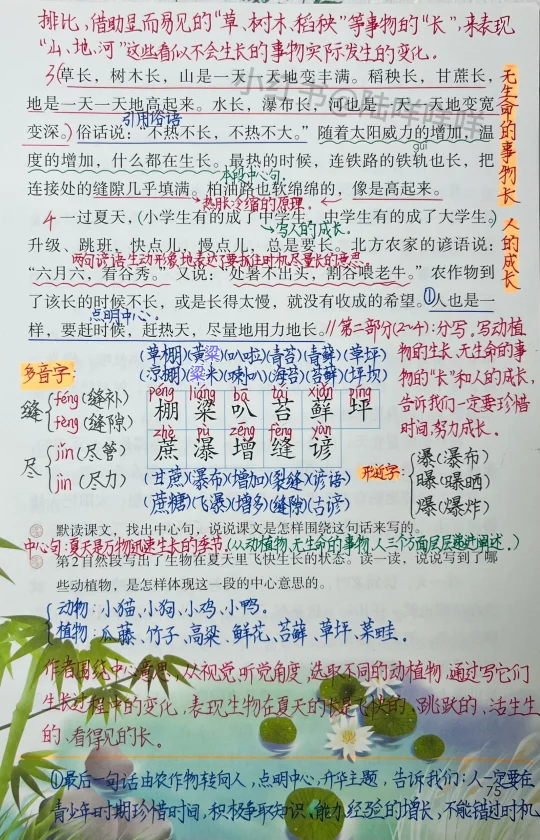 排比，借助显而易见的“草、树木、稻秧”等事物的“长”，来表现
“山、地、河”这些看似不会生长的事物实际发生的变化。
3（草长，树木长，山是一天一天地变丰满。稻秧长，甘蔗长，
地是一天一天地高起来。水长，瀑布长，河也是一天一天地变宽
变深。）俗话说：“不热不长，不热不大。”随着太阳威力的增加，温
引用俗语
度的增加，什么都在生长。最热的时候，连铁路的铁轨也长，把
guǐ
本段中心句。
连接处的缝隙几乎填满。柏油路也软绵绵的，像是高起来。
热胀冷缩的原理。
无生命的事物长
4 一过夏天，（小学生有的成了中学生，中学生有的成了大学生。）
写人的成长。
升级、跳班，快点儿，慢点儿，总是要长。北方农家的谚语说：
两句谚语生动形象地表达了要抓住时机尽量长的意思。
“六月六，看谷秀。”又说：“处暑不出头，割谷喂老牛。”农作物到
了该长的时候不长，或是长得太慢，就没有收成的希望。①人也是一
点明中心。
样，要赶时候，赶热天，尽量地用力地长。//
人的成长
第二部分(2~4)：分写。写动植
物的生长、无生命的事
物的“长”和人的成长，
告诉我们一定要珍惜
时间，努力成长。
多音字：
缝 féng(缝补)
fèng(缝隙)
尽 jǐn(尽管)
jìn(尽力)
(草棚)(黄粱)(叭啦)(青苔)(青藓)(草坪)
(凉棚)(粱米)(喇叭)(海苔)(苔藓)(坪坝)
péng liáng bā tái xiǎn píng
棚 粱 叭 苔 藓 坪
zhè pù zēng fèng yàn
蔗 瀑 增 缝 谚
(甘蔗)(瀑布)(增加)(裂缝)(谚语)
(蔗糖)(飞瀑)(增多)(缝隙)(古谚)
形近字：
瀑(瀑布)
曝(曝晒)
爆(爆炸)
默读课文，找出中心句，说说课文是怎样围绕这句话来写的。
中心句：夏天是万物迅速生长的季节。(从动植物、无生命的事物、人三个方面层层递进阐述。)
第2自然段写出了生物在夏天里飞快生长的状态。读一读，说说写到了哪
些动植物，是怎样体现这一段的中心意思的。
动物：小猫、小狗、小鸡、小鸭。
植物：瓜藤、竹子、高粱、鲜花、苔藓、草坪、菜畦。
作者围绕中心意思，从视觉、听觉角度，选取不同的动植物，通过写它们
生长过程中的变化，表现生物在夏天的长是飞快的、跳跃的、活生生
的、看得见的长。
①最后一句话由农作物转向人，点明中心，升华主题，告诉我们：人一定要在
青少年时期珍惜时间，积极争取知识、能力、经验的增长，不能错过时机
75
小红书@陆咩咩咩